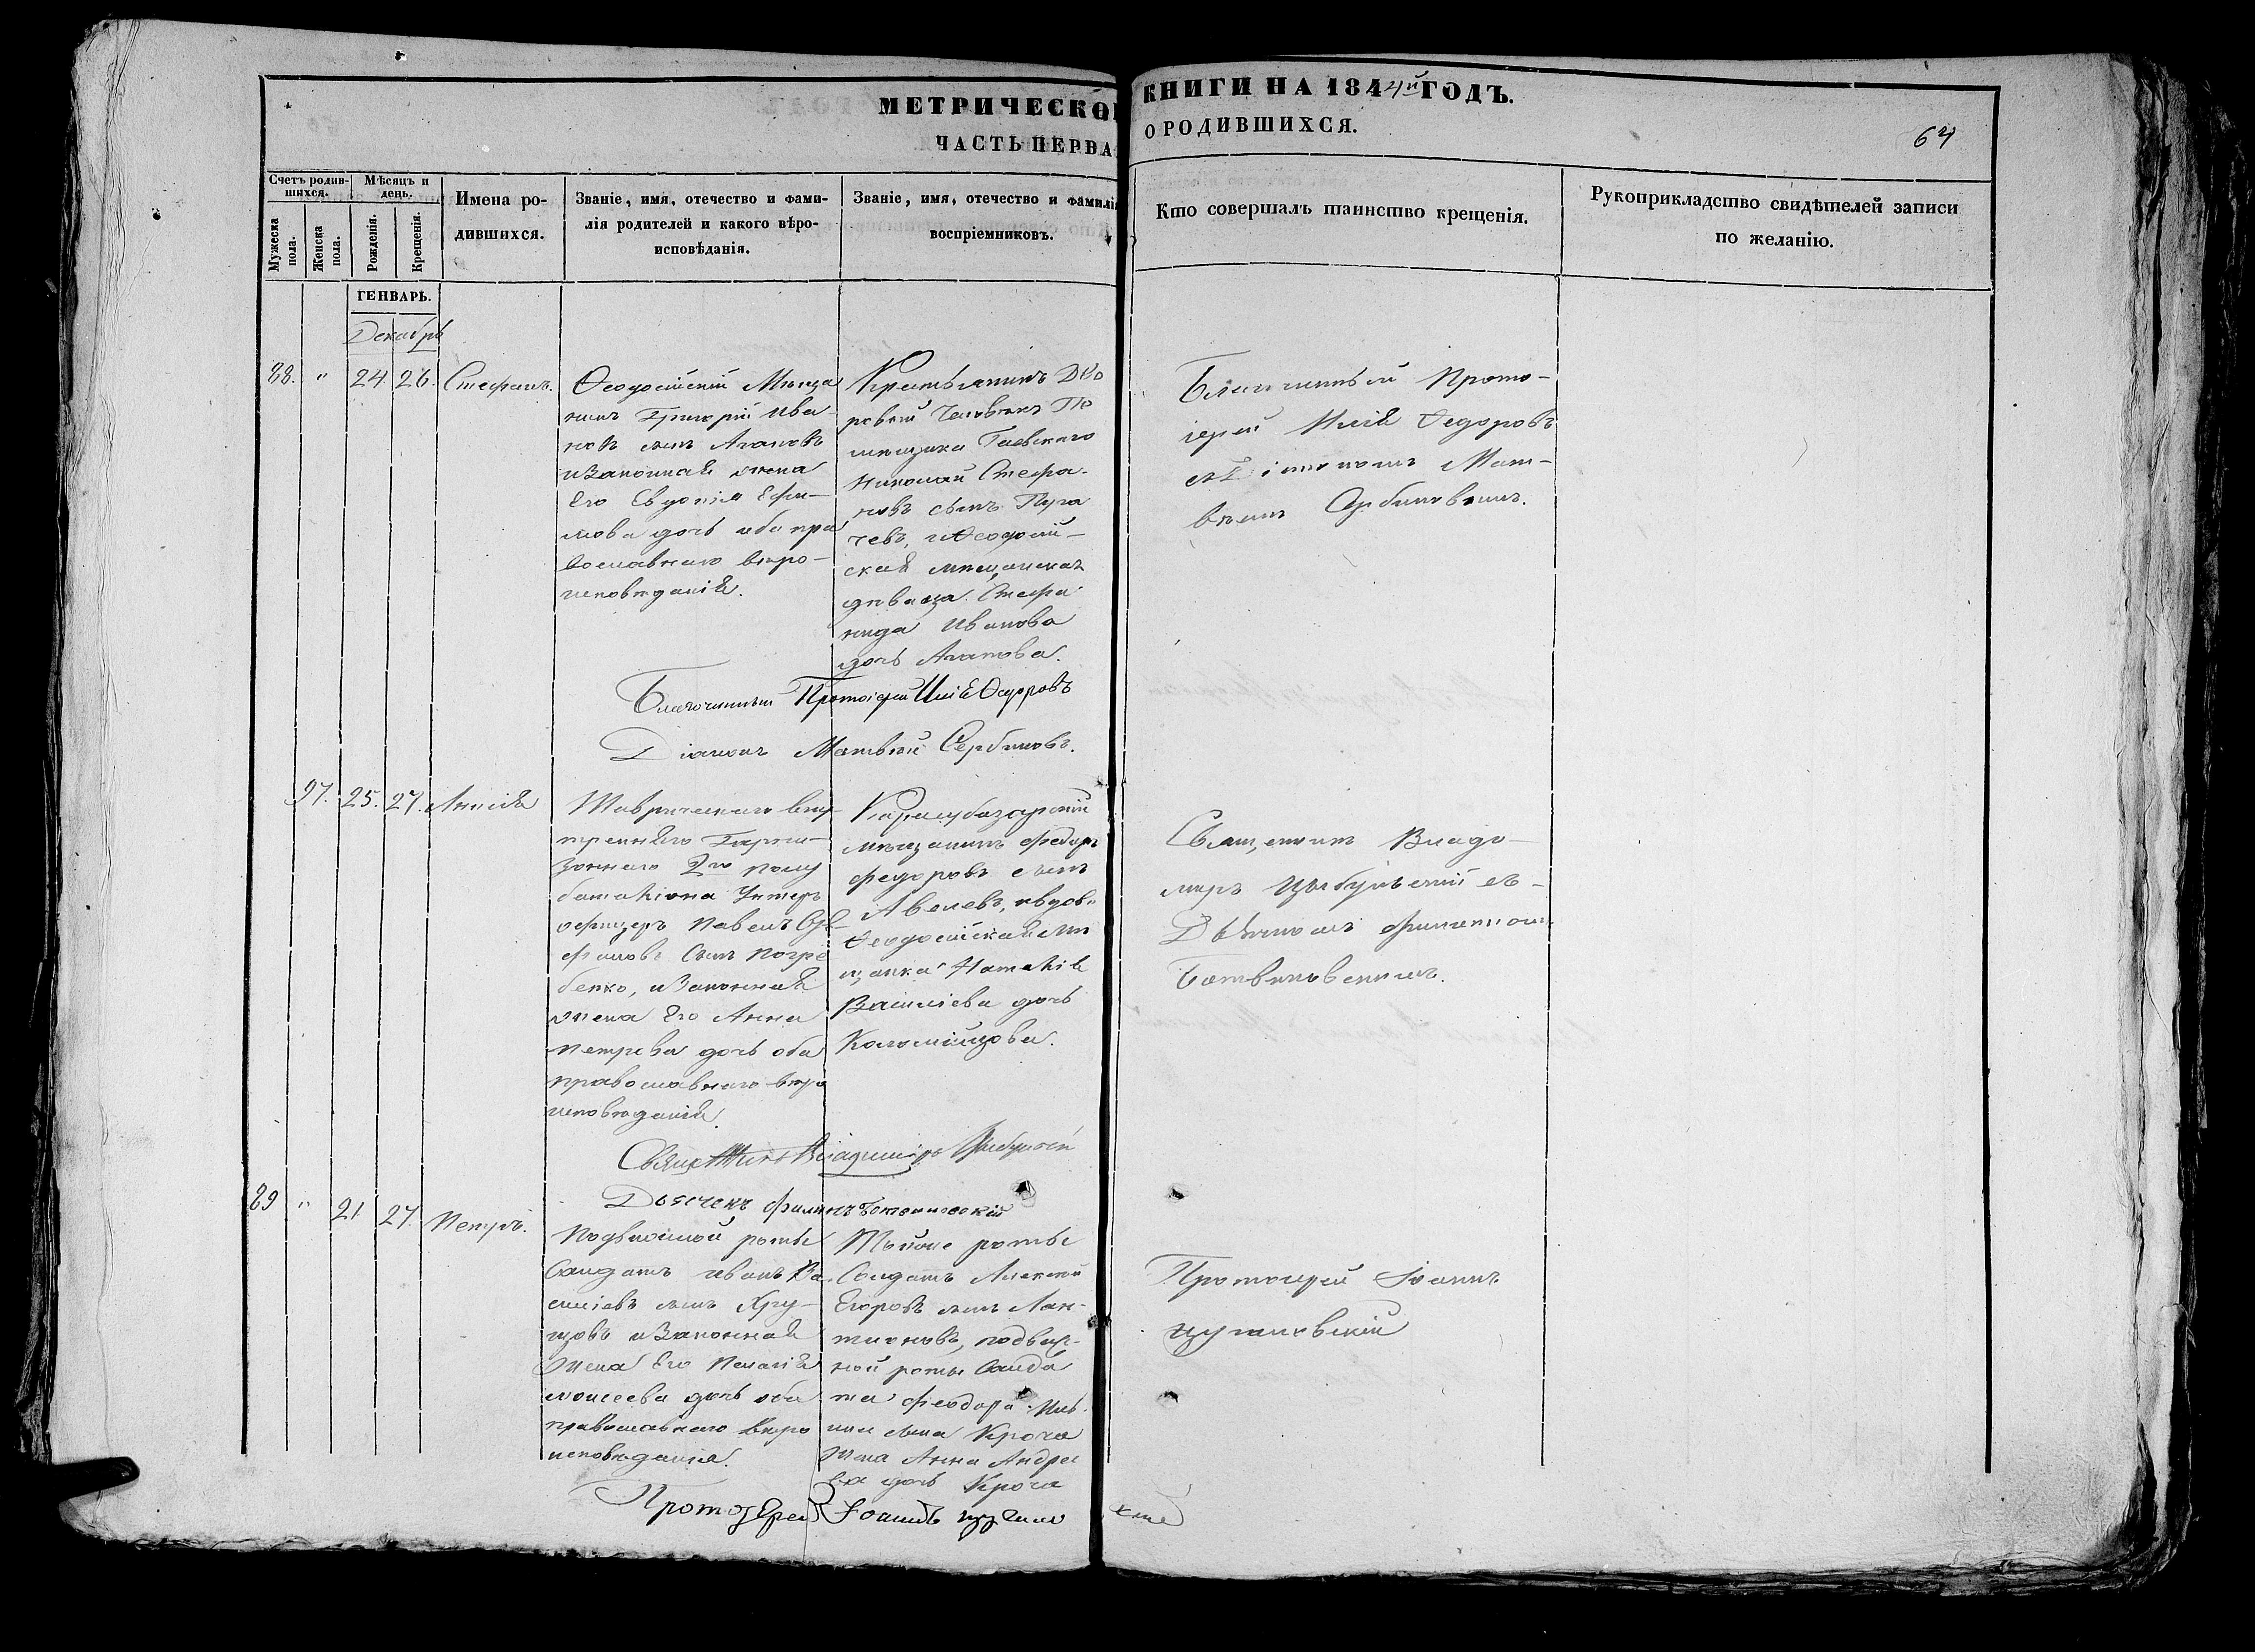 МЕТРИЧЕСКОЙ КНИГИ НА 1844й ГОДЪ.
ЧАСТЬ ПЕРВА О РОДИВШИХСЯ.
64
Счетъ родив-
шихся.
Мужеска
пола.
Женска
пола.
Мѣсяцъ и
день.
Рожденія.
Крещенія.
Имена ро-
дившихся.
Званіе, имя, отечество и фами-
лія родителей и какого вѣро-
исповѣданія.
Званіе, имя, отечество и фамилія
воспріемниковъ.
Кто совершалъ таинство крещенія.
Рукоприкладство свидѣтелей записи
по желанію.
ГЕНВАРЬ.
Декабрь
88. " 24 26. Стефанъ.
Ѳеодосійскій Мѣща
нинъ Григорій Ива
новъ сынъ Агаповъ
и Законная жена
Его Евдокія Ефи-
мова дочь оба пра
вославнаго вѣро-
исповѣданія.
Крестьянинъ Дво
ровый Человѣкъ По
мѣщика Гаевскаго
Николай Стефа-
новъ сынъ Пуга
чевъ, и Ѳеодосій-
ская мѣщанская
дѣвица Стефа
нида Иванова
дочь Агапова.
Благочинный Прото-
іерей Илія Ѳедоровъ
съ Діакономъ Мат-
вѣемъ Сербиновымъ.
Благочинный Протоіерей Илія Ѳедоровъ
Діаконъ Матвѣй Сербиновъ.
97. 25. 27. Анисія
Таврическаго Вну-
тренняго Гарни-
зоннаго 2го полу
баталіона Унтеръ
офицеръ Павелъ
сынъ Погре
бенко, и Законная
жена Его Анна
Петрова дочь оба
православнаго вѣро
исповѣданія.
Карасубазарскій
мѣщанинъ Федоръ
Федоровъ сынъ
Авелевъ, и вдова
Ѳеодосійская мѣ
щанка Наталія
Василіева дочь
Коломійцова.
Священникъ Влади-
миръ Цыбульскій съ
Дьячкомъ Филиппом
Ботвиновскимъ.
Священникъ Владиміръ Цыбульскій
Дьячекъ Филипъ Ботвиновскій
89 " 21 27. Петръ.
Подвижной роты
Солдатъ Иванъ Ва-
силіевъ сынъ Хру-
щовъ и Законная
жена Его Пелагія
Моисеева дочь оба
православнаго вѣро
исповѣданія.
роты
Солдатъ Алексѣй
Егоровъ сынъ Лак-
тионовъ, подвиж-
ной роты Солда
та Феодора Иль
ина сына Кроча
жена Анна Андрее
ва дочь Кроча
Протоіерей Іоаннъ
Протоіерей Іоаннъ